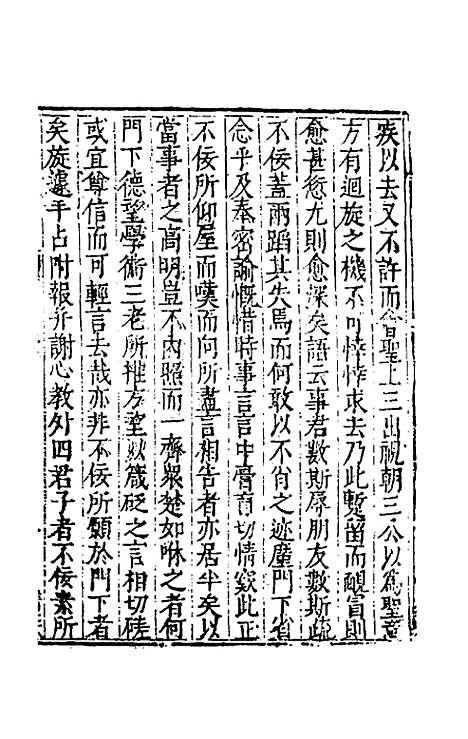 疾以去又不許而會聖上三出視朝三公以爲聖意
方有迴旋之機不可悻悻求去乃此蹔留而靦冒則
愈甚愆尤則愈深矣語云事君數斯辱朋友數斯疏
不佞蓋兩蹈其失焉而何敢以不肖之迹塵門下省
念乎及奉密諭慨惜時事言言中膏肓切情窾此正
不佞所仰屋而嘆而向所盡言相告者亦居半矣以
當事者之高明豈不內照而一齊衆楚如咻之者何
門下德望學術三老所推方望以箴砭之言相切磋
或宜尊信而可輕言去哉亦非不佞所願於門下者
矣旋遽手占附報并謝心教外四君子者不佞素所